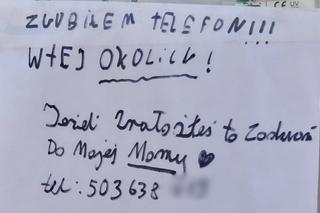 ZGUBIŁEM TELEFON!!!
W TEJ OKOLICY!
Jeżeli Znalazłeś to Zadzwoń
Do Mojej Mamy
tel: 503 638